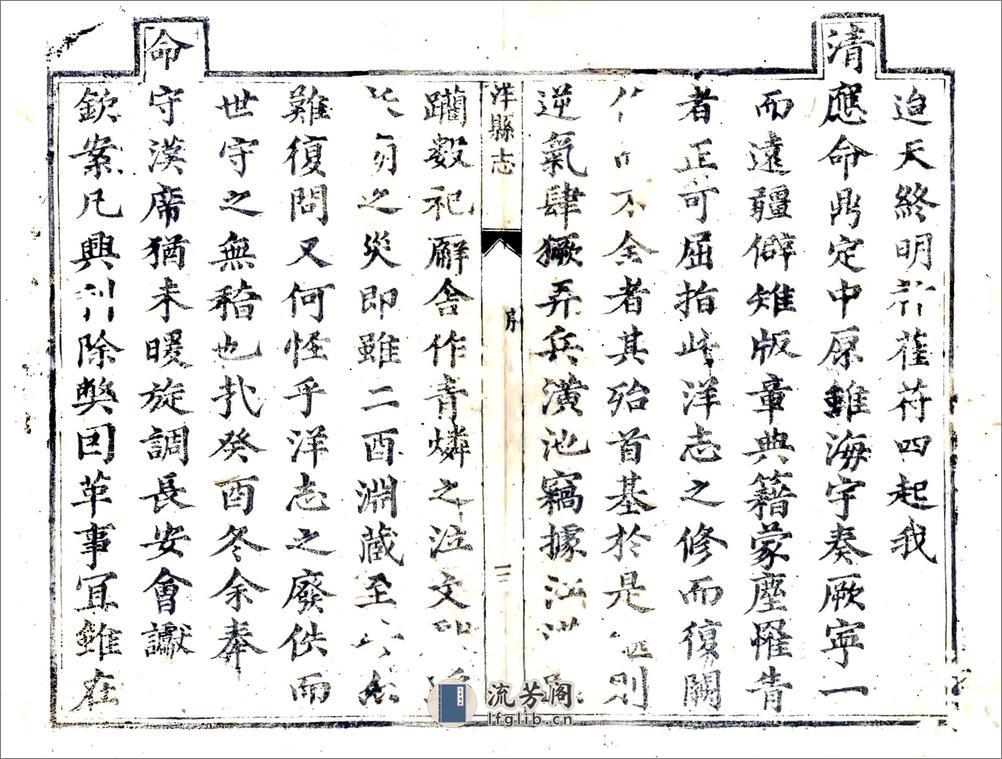 迨天終明祚萑苻四起我
清應命鼎定中原雖海宇奏厥寧一
而遠疆僻雉版章典籍蒙塵罹眚
者正可屈指此洋志之修而復闕
不全者其殆首基於是則
逆氣肆獗弄兵潢池竊據
洋縣志
序
三
躪数祀廨舍作青燐之泣文
之災即雖二酉淵藏至
難復問又何怪乎洋志之廢佚而
世守之無稽也扎癸酉冬余奉
命
守漢席猶未暖旋調長安會讞
欽案凡興利除弊因革事宜雖在
流芳阁
lfglib.cn